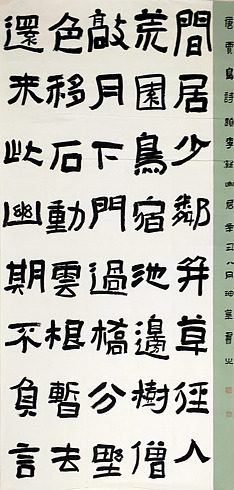 間居少鄰并草徑入
荒園鳥宿池邊樹僧
敲月下門過橋分野
色移石動雲根暫去
還來此幽期不負言
唐賈島詩題李凝幽居辛丑八月書之